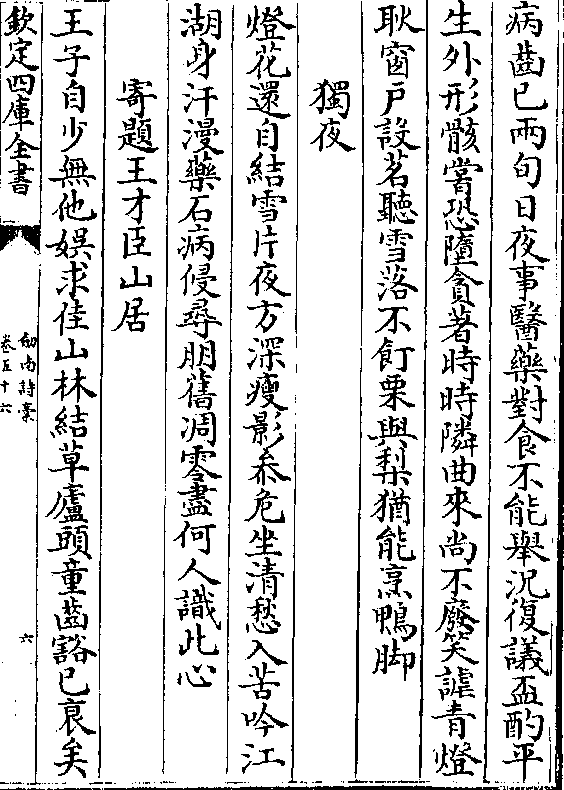 病齒已兩旬日夜事醫藥對食不能舉況復議盃酌平
生外形骸嘗恐墮貪著時時隣曲來尚不廢笑謔青燈
耿窗戶設茗聽雪落不飣栗與梨猶能烹鴨脚
獨夜
燈花還自結雪片夜方深瘦影叅危坐清愁入苦吟江
湖身汗漫藥石病侵尋朋舊凋零盡何人識此心
寄題王才臣山居
王子自少無他娯求佳山林結草廬頭童齒豁已哀矣
欽定四庫全書
劔南詩稾
卷五十六
六